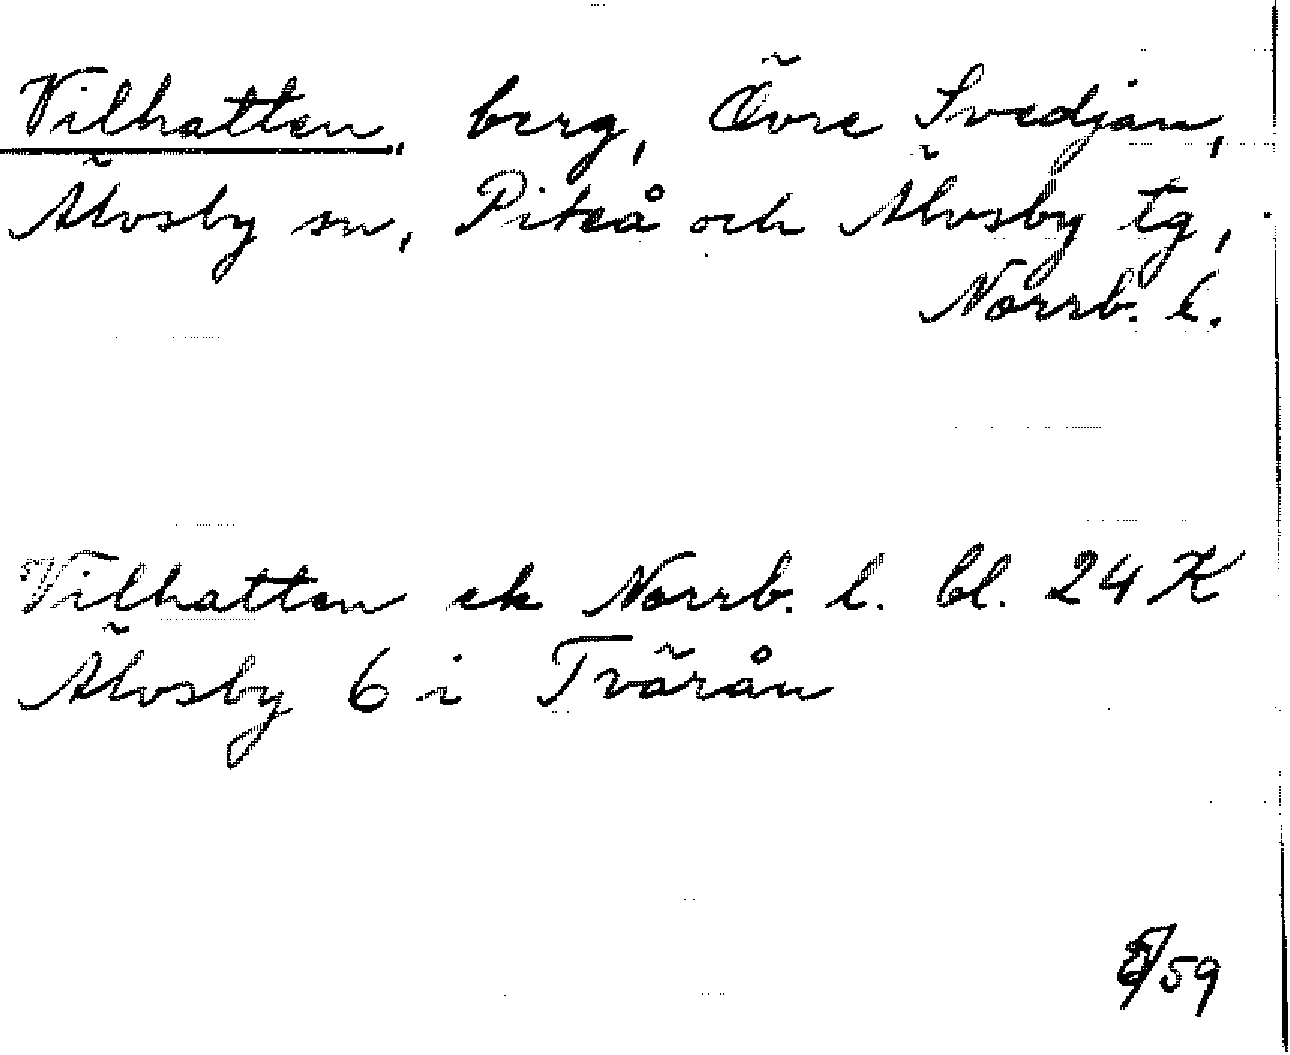 Vilhatten, berg, Övre Svedjan,
Älvsby sn, Piteå och Älvsby tg,
Norrb. l.
Vilhatten ek Norrb. l. bl. 24 K
Älvsby 6 i Tvärån
/59